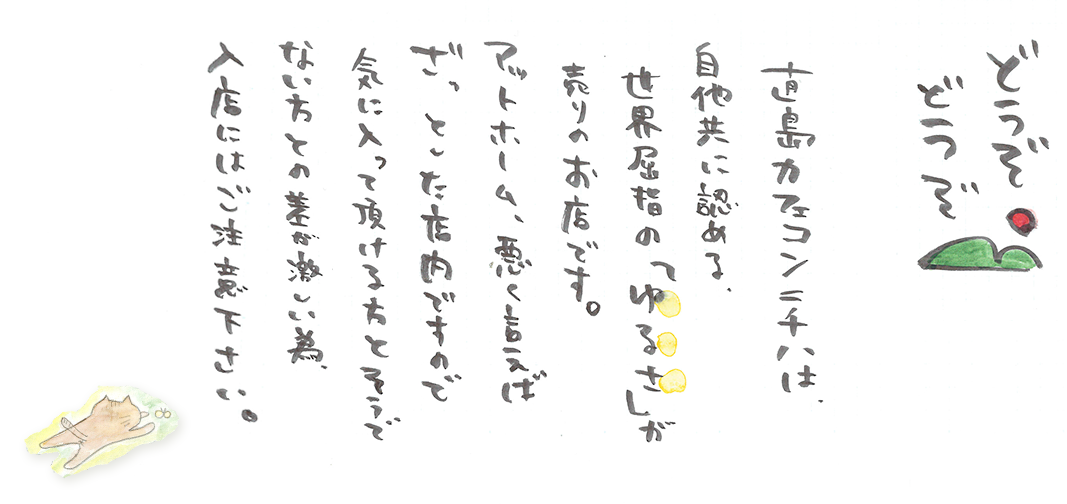 どうぞ
どうぞ
直島カフェコンニチハは、
自他共に認める、
世界屈指の「ゆるさ」が
売りのお店です。
アットホーム、悪く言えば
ざっとした店内ですので
気に入って頂ける方とそうで
ない方との差が激しい為、
入店にはご注意下さい。